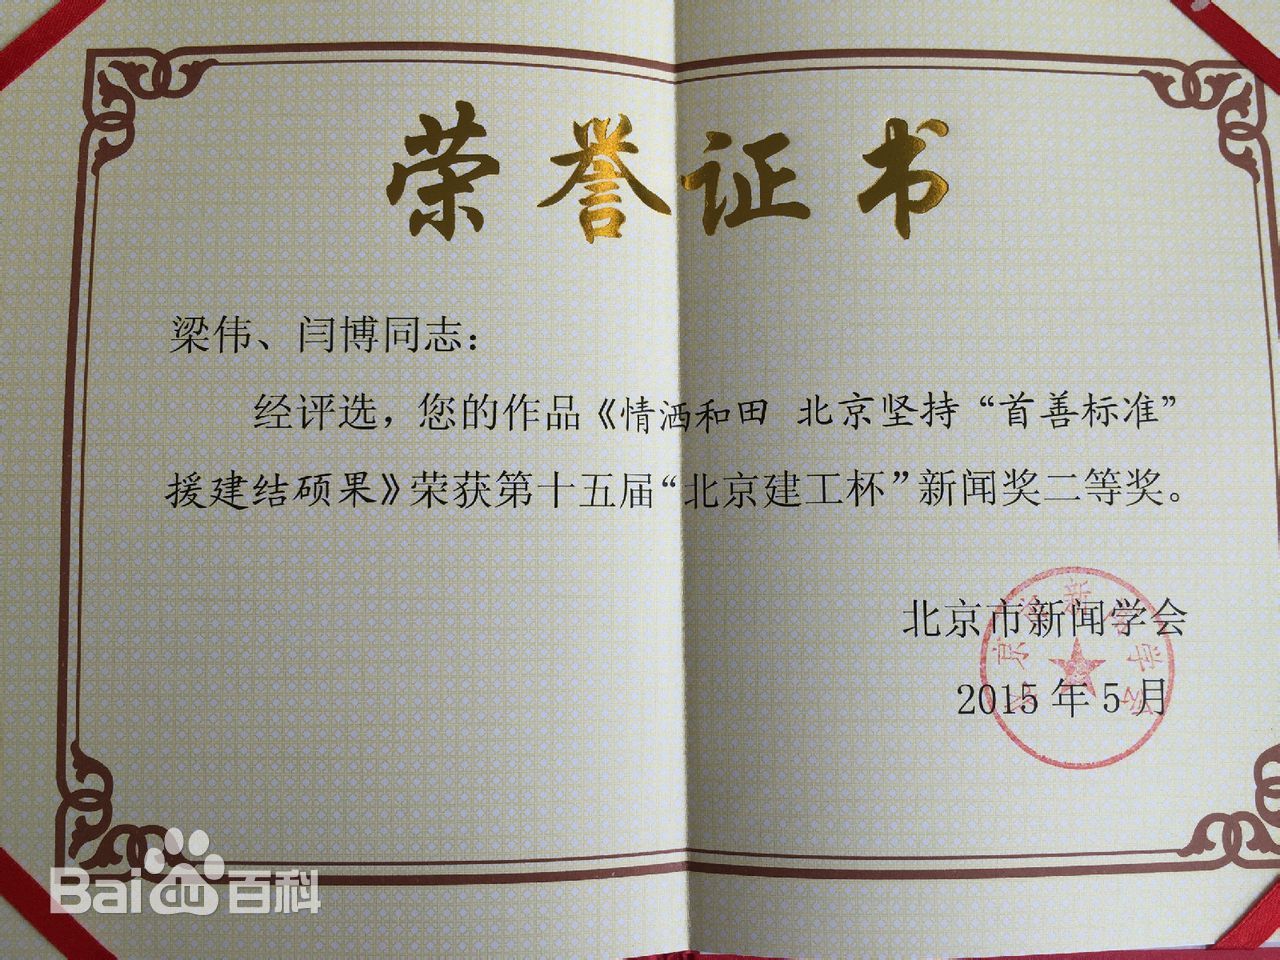 荣誉证书
梁伟、闫博同志：
经评选，您的作品《情洒和田 北京坚持“首善标准”
援建结硕果》荣获第十五届“北京建工杯”新闻奖二等奖。
北京市新闻学会
2015年5月
北京市新闻学会
Bai百科